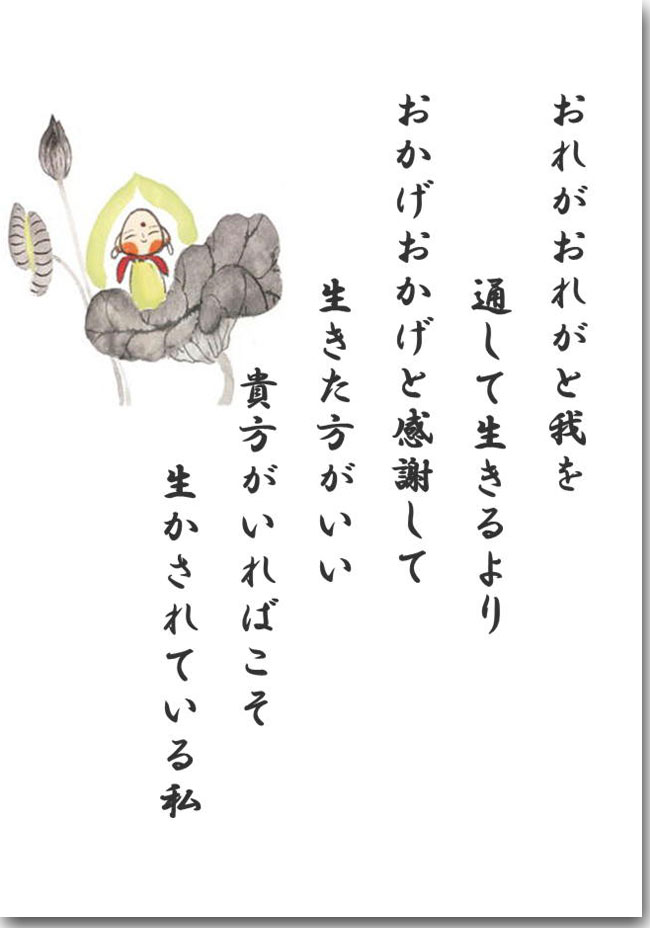 おれがおれがと我を
通して生きるより
おかげおかげと感謝して
生きた方がいい
貴方がいればこそ
生かされている私